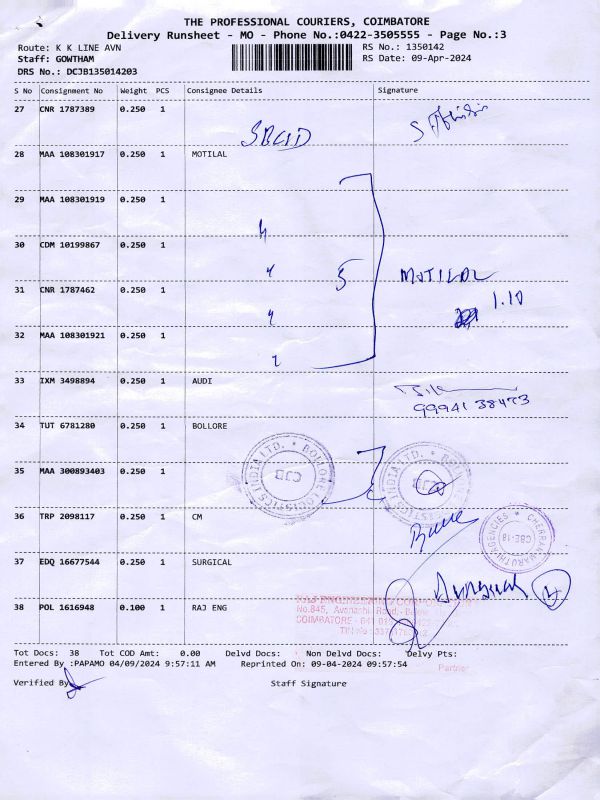 THE PROFESSIONAL COURIERS, COIMBATORE
Delivery Runsheet - MO - Phone No.:0422-3505555 - Page No.:3
Route: K K LINE AVN RS No.: 1350142
Staff: GOWTHAM RS Date: 09-Apr-2024
DRS No.: DCJB135014203
S No Consignment No Weight PCS Consignee Details Signature
27 CNR 1787389 0.250 1
28 MAA 108301917 0.250 1 MOTILAL
29 MAA 108301919 0.250 1
30 CDM 10199867 0.250 1
5 MOTILAL
31 CNR 1787462 0.250 1
1.10
32 MAA 108301921 0.250 1
33 IXM 3498894 0.250 1 AUDI
99941 38473
34 TUT 6781280 0.250 1 BOLLORE
BOLLORE LOGISTICS INDIA LTD. CJB
35 MAA 300893403 0.250 1
36 TRP 2098117 0.250 1 CM
CHERRAN MARUTHI AGENCIES CBE-18
37 EDQ 16677544 0.250 1 SURGICAL
38 POL 1616948 0.100 1 RAJ ENG
RAJ ENGINEERING CORPORATION
No.845, Avanashi Road,
COIMBATORE - 641 018
Tot Docs: 38 Tot COD Amt: 0.00 Delvd Docs: Non Delvd Docs: Delvy Pts:
Entered By :PAPAMO 04/09/2024 9:57:11 AM Reprinted On: 09-04-2024 09:57:54
Partner
Verified By Staff Signature